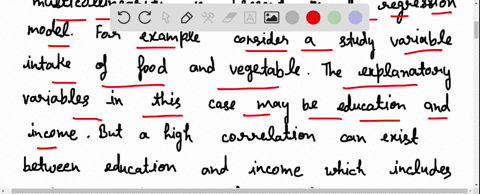 regression
model. For example consider a study variable
intake of food and vegetable. The explanatory
variables in this case may be education and
income. But a high correlation can exist
between education and income which includes